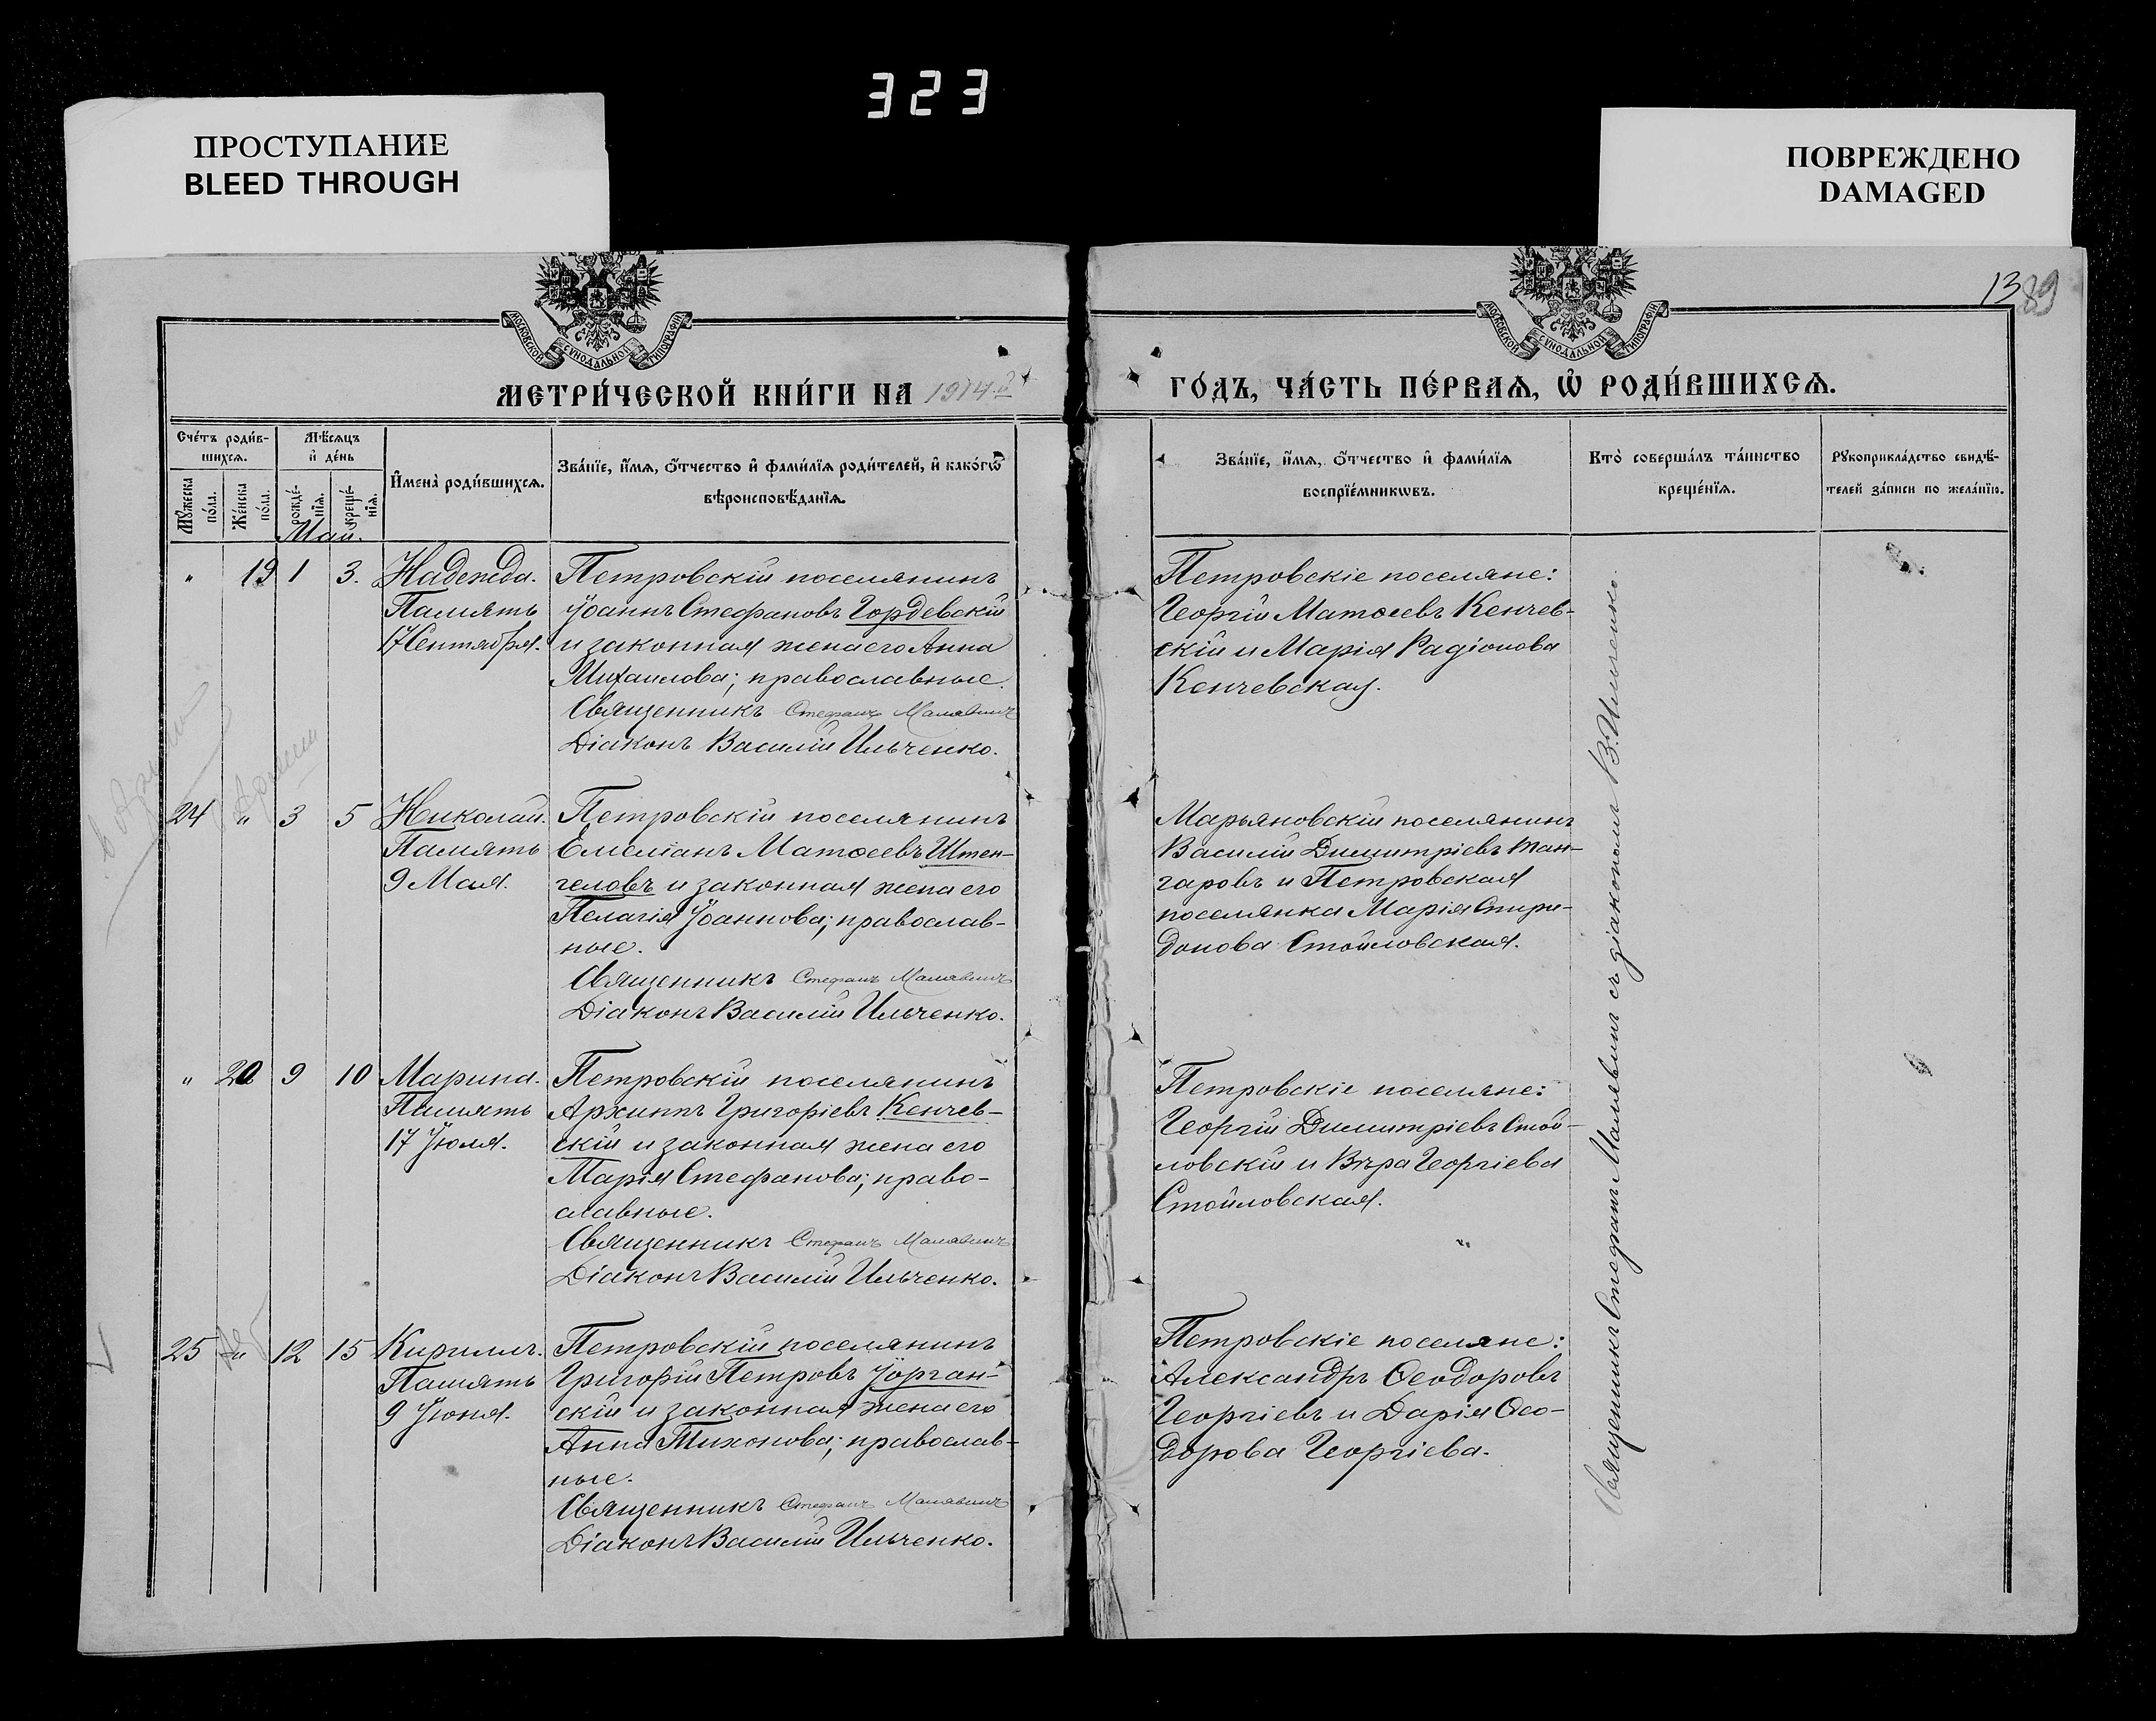 323
ПРОСТУПАНИЕ
BLEED THROUGH
ПОВРЕЖДЕНО
DAMAGED
МОСКОВСКОЙ СѴНОДАЛЬНОЙ ТИПОГРАФІИ
МОСКОВСКОЙ СѴНОДАЛЬНОЙ ТИПОГРАФІИ
13
89
МЕТРИ́ЧЕСКОЙ КНИ́ГИ НА 1914 й
ГО́ДЪ, ЧА́СТЬ ПЕ́РВАѦ, Ѡ҆ РОДИ́ВШИХСѦ.
Сче́тъ роди́в-
шихсѧ.
Мѣ́сѧцъ
и҆ де́нь
Мꙋ́жеска
по́ла.
Же́нска
по́ла.
рожде́-
нїѧ.
креще́-
нїѧ.
И҆мена̀ роди́вшихсѧ.
Зва́нїе, и҆́мѧ, ѻ҆́тчество и҆ фами́лїѧ роди́телей, и҆ како́гѡ
вѣроисповѣ́данїѧ.
Зва́нїе, и҆́мѧ, ѻ҆́тчество и҆ фами́лїѧ
воспрїе́мникѡвъ.
Кто̀ соверша́лъ та́инство
креще́нїѧ.
Рꙋкоприкла́дство свидѣ́-
телей за́писи по жела́нїю.
Май.
" 19 1 3. Надежда.
Память
17 Сентября.
Петровскій поселянинъ
Іоаннъ Стефановъ Гордевскій
и законная жена его Анна
Михаилова; православные.
Священникъ Стефанъ Малявинъ
Діаконъ Василій Ильченко.
Петровскіе поселяне:
Георгій Матѳеевъ Кенчев-
скій и Марія Радіонова
Кенчевская.
24 " 3 5 Николай.
Память
9 Мая.
Петровскій поселянинъ
Емеліанъ Матѳеевъ Штен-
геловъ и законная жена его
Пелагія Іоаннова; православ-
ные.
Священникъ Стефанъ Малявинъ
Діаконъ Василій Ильченко.
Марьяновскій поселянинъ
Василій Димитріевъ Тан-
гаровъ и Петровская
поселянка Марія Спири-
донова Стойловская.
" 20 9 10 Марина.
Память
17 Іюля.
Петровскій поселянинъ
Архиппъ Григоріевъ Кенчев-
скій и законная жена его
Марія Стефанова; право-
славные.
Священникъ Стефанъ Малявинъ
Діаконъ Василій Ильченко.
Петровскіе поселяне:
Георгій Димитріевъ Стой-
ловскій и Вѣра Георгіева
Стойловская.
25 " 12 15 Кириллъ.
Память
9 Іюня.
Петровскій поселянинъ
Григорій Петровъ Іорган-
скій и законная жена его
Анна Тихонова; православ-
ные.
Священникъ Стефанъ Малявинъ
Діаконъ Василій Ильченко.
Петровскіе поселяне:
Александръ Ѳеодоровъ
Георгіевъ и Дарія Ѳео-
дорова Георгіева.
Священникъ Стефанъ Малявинъ съ діакономъ В. Ильченко.